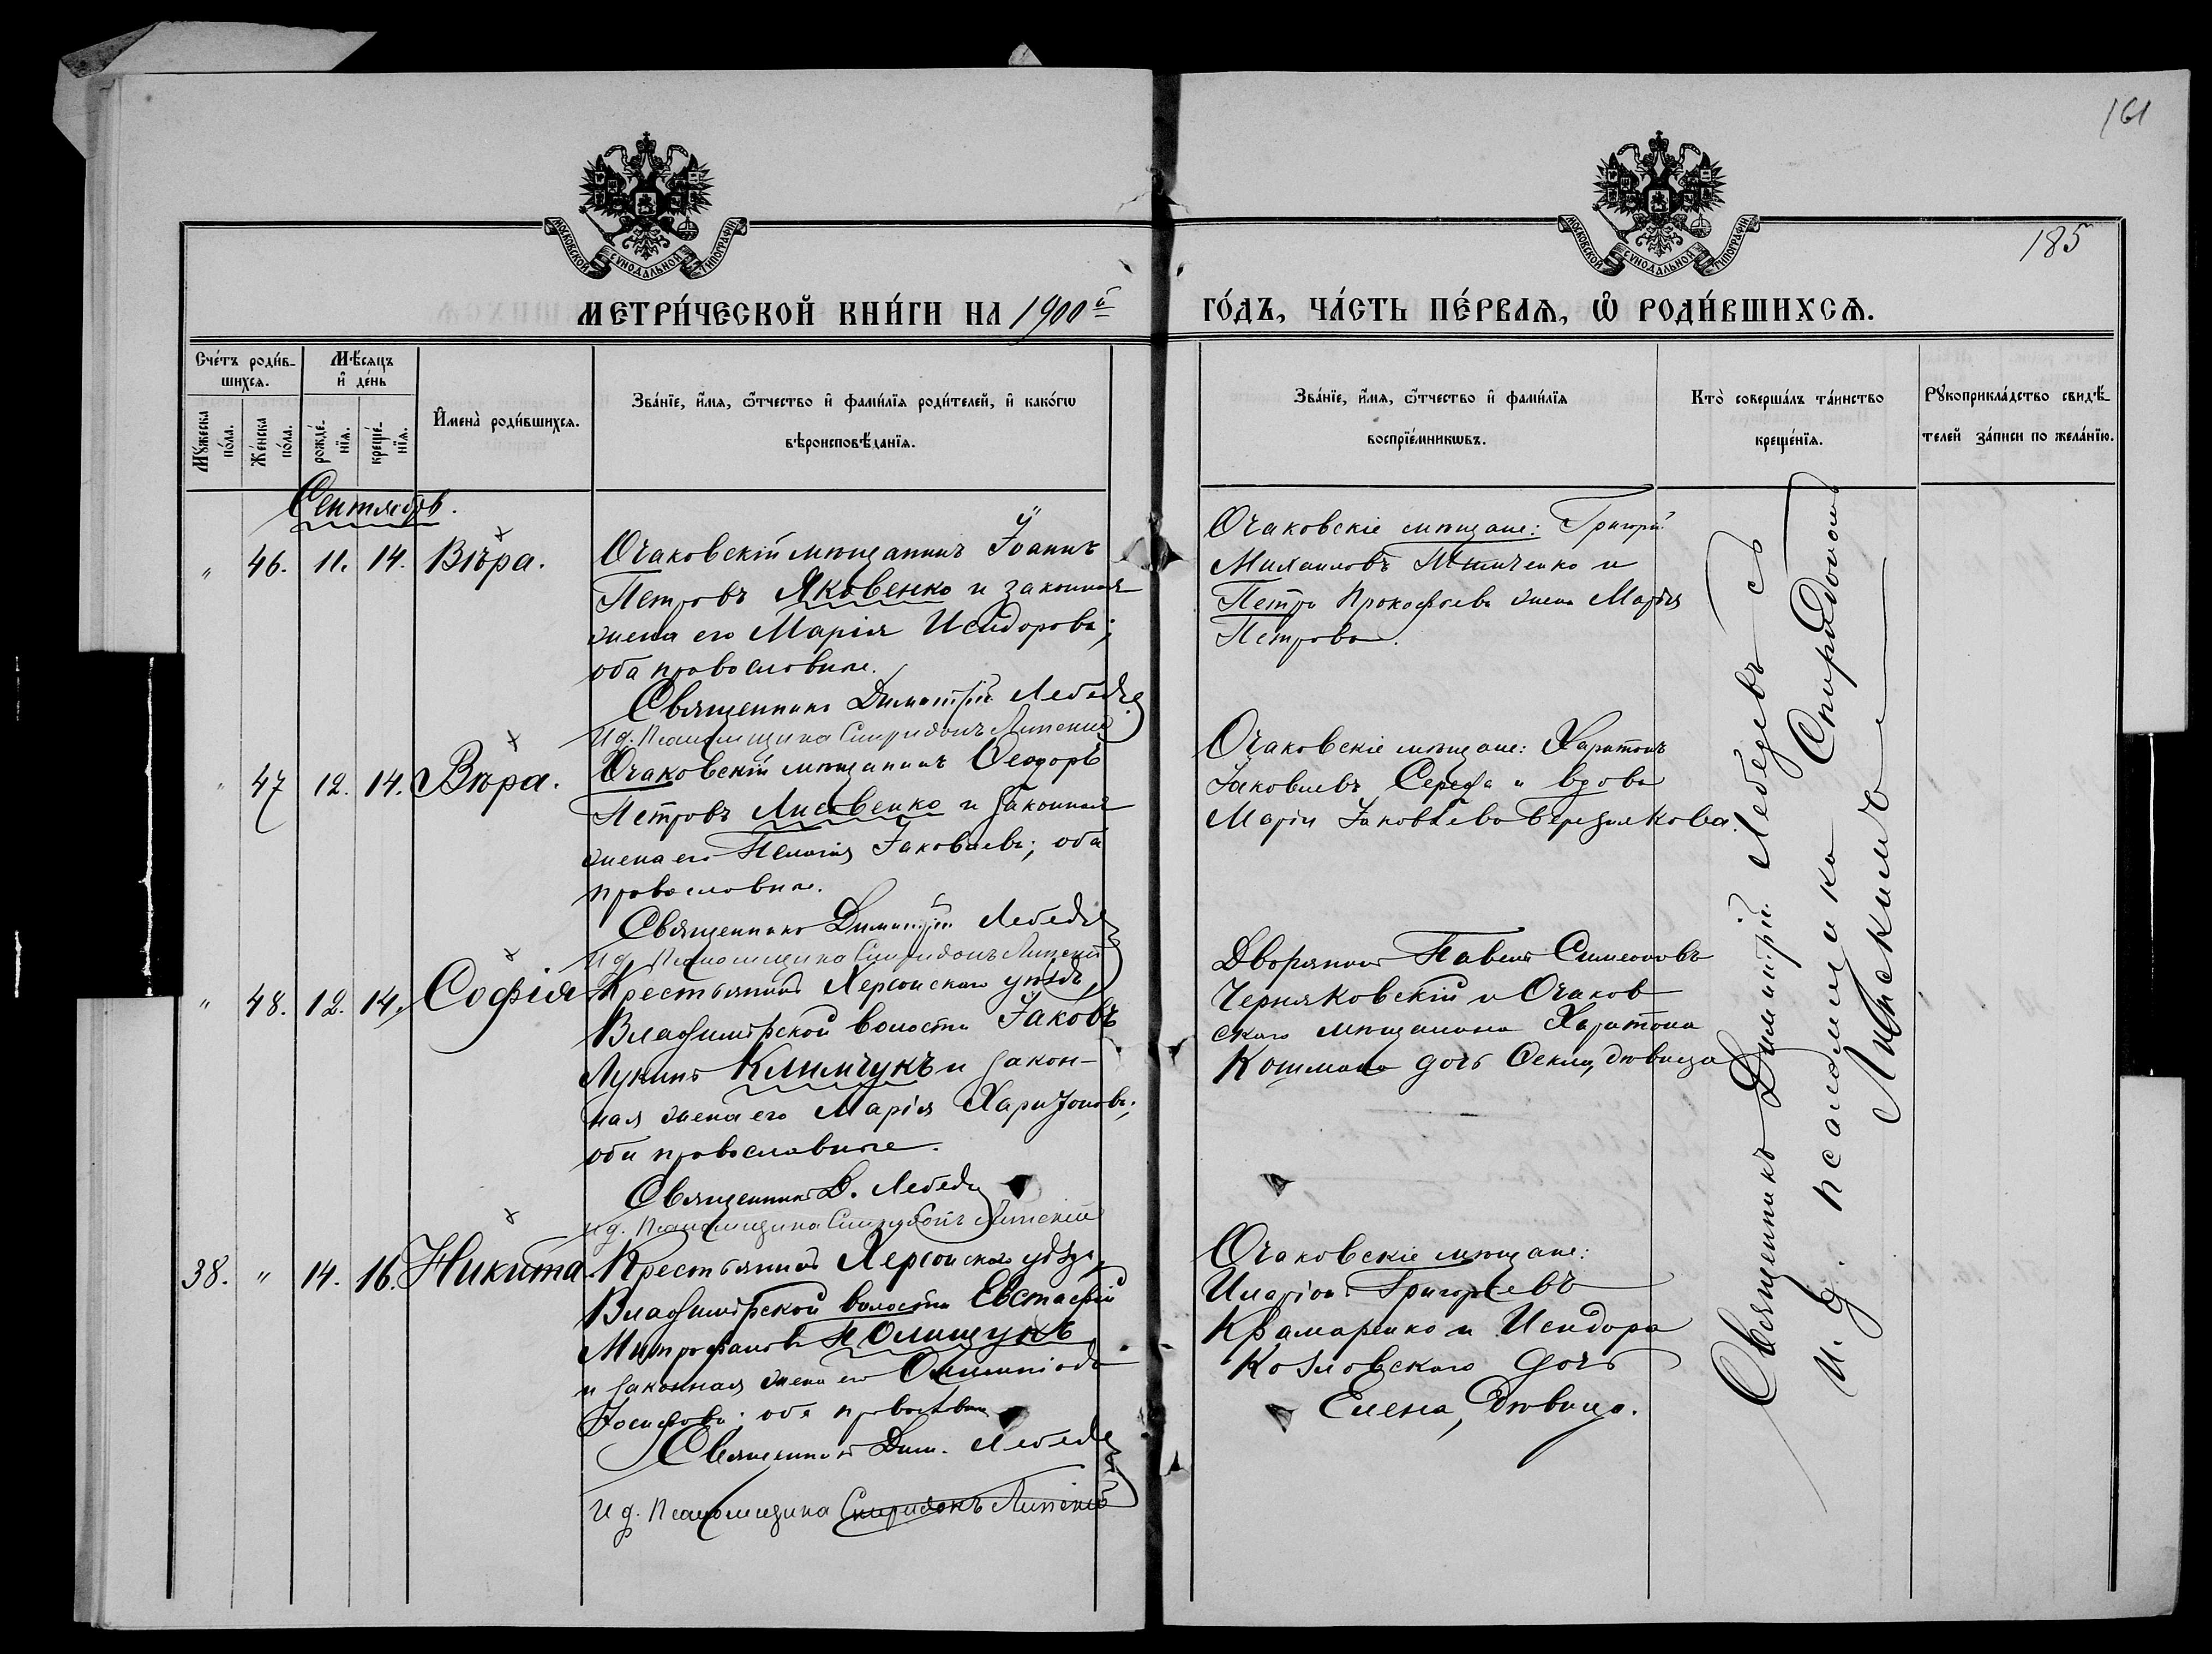 161
185
МОСКОВСКОЙ СѴНОДАЛЬНОЙ ТИПОГРАФІИ
МОСКОВСКОЙ СѴНОДАЛЬНОЙ ТИПОГРАФІИ
МЕТРИ́ЧЕСКОЙ КНИ́ГИ НА 1900й
ГО́ДЪ, ЧА́СТЬ ПЕ́РВАѦ, Ѿ РОДИ́ВШИХСѦ.
Сче́тъ роди́в-
шихсѧ.
Мѣ́сѧцъ
и҆ де́нь
Мꙋ́жеска
по́ла.
Же́нска
по́ла.
рожде́-
нїѧ.
креще́-
нїѧ.
И҆мена̀ роди́вшихсѧ.
Зва́нїе, и҆́мѧ, ѻ҆́тчество и҆ фами́лїѧ роди́телей, и҆ како́гѡ
вѣроисповѣ́данїѧ.
Зва́нїе, и҆́мѧ, ѻ҆́тчество и҆ фами́лїѧ
воспрїе́мникѡвъ.
Кто̀ соверша́лъ та́инство
креще́нїѧ.
Рꙋкоприкла́дство свидѣ́-
телей за́писи по жела́нїю.
Сентябрь.
" 46. 11. 14. Вѣра.
Очаковскій мѣщанинъ Іоаннъ
Петровъ Яковенко и законная
жена его Марія Исидорова;
оба православные.
Священникъ Димитрій Лебедевъ
И д. Псаломщика Спиридонъ Липскій
Очаковскіе мѣщане: Григорій
Михаиловъ и
Петра Прокофьева жена Марія
Петрова.
" 47 12. 14. Вѣра.
Очаковскій мѣщанинъ Ѳеодоръ
Петровъ Лисовенко и законная
жена его Пелагія Іаковлева; оба
православные.
Священникъ Димитрій Лебедевъ
И д. Псаломщика Спиридонъ Липскій
Очаковскіе мѣщане: Харитонъ
Іаковлевъ Середа и вдова
Марія Іаковлева
" 48. 12. 14. Софія
Крестьянинъ Херсонскаго уѣзда,
Владимірской волости Іаковъ
Лукинъ Климчукъ и закон-
ная жена его Марія Харитонова;
оба православные.
Священникъ Д. Лебедевъ
И д. Псаломщика Спиридонъ Липскій
Дворянинъ Павелъ Симеоновъ
Черняковскій и Очаков
скаго мѣщанина Харитона
Кошмана дочь Ѳекла, дѣвица
38. " 14. 16. Никита
Крестьянинъ Херсонскаго уѣзда,
Владимірской волости Евстафій
Митрофановъ Полищукъ
и законная жена его Олимпіада
Іосифова; оба православные
Священникъ Дим. Лебедевъ
И д. Псаломщика Спиридонъ Липскій
Очаковскіе мѣщане:
Иларіонъ Григорьевъ
Крамаренко и Исидора
Козловскаго дочь
Елена, дѣвица.
Священникъ Димитрій Лебедевъ съ
И. д. псаломщика Спиридономъ
Липскимъ